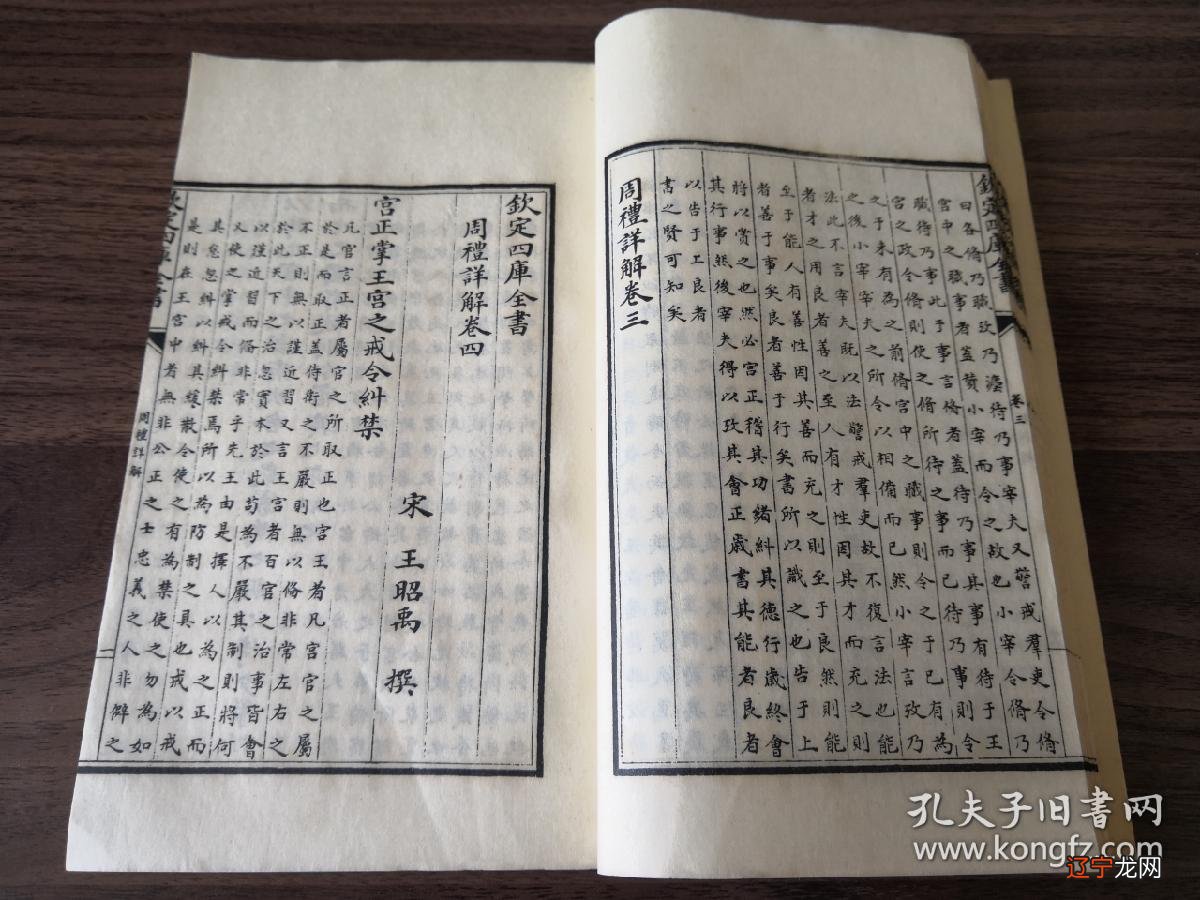 欽定四庫全書
卷三
曰各脩乃職攷乃灋待乃事宰夫又警戒羣吏令脩
宮中之職事者蓋贊小宰而令之故也小宰令脩乃
職待乃事此于事言脩者蓋待乃事其事有待于王
宮之政令脩則使之脩所待之事而已待乃事則令
之于未有為之前脩宮中之職事則令之于已有為
之後小宰宰夫之所令以相備而已然小宰言攷乃
法此不言宰夫既以法警戒羣吏故不復言法也能
者才之用良者善之至人有才性因其才而充之則
至于能人有善性因其善而充之則至于良然則能
者善于事矣良者善于行矣書所以識之也告于上
將以賞之也然必宮正稽其功緒糾其德行歲終會
其行事然後宰夫得以攷其會正歲書其能者良者
以告于上良者
書之賢可知矣
周禮詳解卷三
欽定四庫全書
周禮詳解卷四
宋 王昭禹 撰
宮正掌王宮之戒令糾禁
凡官言正者屬官之所取正也宮王者凡宮官之屬
於是而取正蓋侍衛之不嚴則無以脩非常左右之
不正則無以謹近習又言王宮者百官之治事皆會
於此天下之治忽實本於此苟為不嚴其制則將何
以謹近習而俻非常乎先王由是擇人以為之正而
又使之掌戒令糾禁焉所以為防制之具也戒以戒
其怠忽糾以糾其緩散令使之有為禁使之勿為如
是則在王宮中者無非公正之士忠義之人非僻之
欽定四庫全書
周禮詳解
一
孔夫子旧书网
www.kongfz.com
辽宁龙网